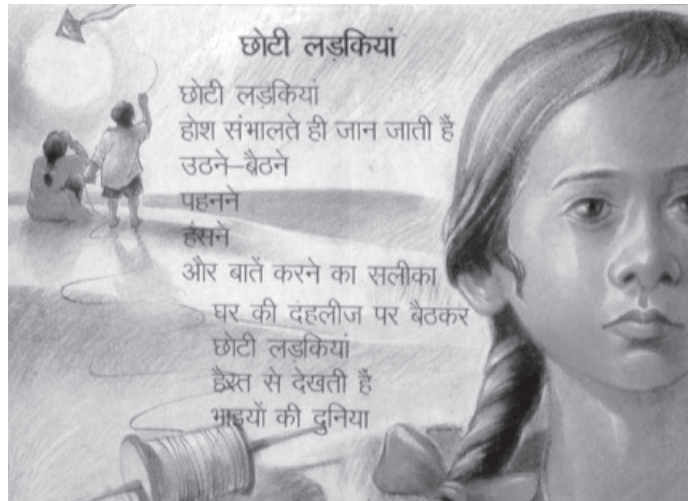 छोटी लड़कियां
छोटी लड़कियां
होश संभालते ही जान जाती हैं
उठने–बैठने
पहनने
हंसने
और बातें करने का सलीका
घर की दहलीज पर बैठकर
छोटी लड़कियां
हैरत से देखती हैं
भाइयों की दुनिया